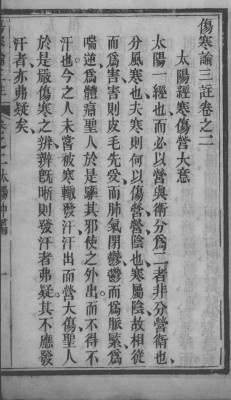 傷寒論三註卷之二
太陽經寒傷營大意
太陽一經也而必以營與衛分爲二者非分營衛也
分風寒也夫寒則何以傷營營陰也寒屬陰故相從
而爲害害則皮毛先受而肺氣閉鬱鬱而爲脈緊爲
喘逆爲體痛聖人於是驅其邪使之外出而不得不
汗也今之人未嘗被寒輒發汗汗出而營大傷聖人
於是嚴傷寒之辨辨旣晰則發汗者弗疑其不應發
汗者亦弗疑矣